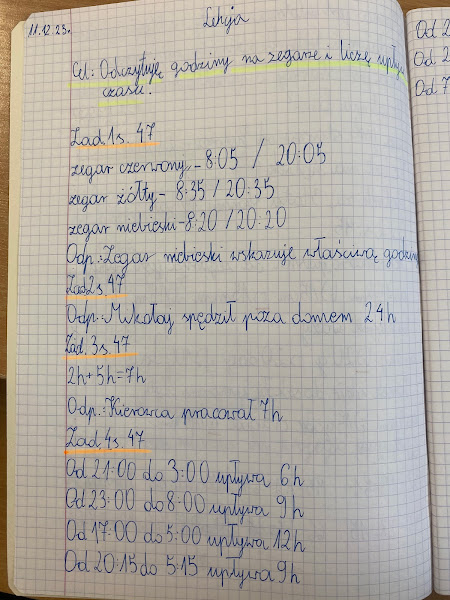 11.12.23.
Lekcja
Cel: Odczytuję godziny na zegarze i liczę upływ
czasu.
Zad.1 s. 47
zegar czerwony - 8:05 / 20:05
zegar żółty - 8:35 / 20:35
zegar niebieski - 8:20 / 20:20
Odp.: Zegar niebieski wskazuje właściwą godzinę
Zad.2 s. 47
Odp.: Mikołaj spędził poza domem 24h
Zad. 3 s. 47
2h + 5h = 7h
Odp.: Kierowca pracował 7h
Zad. 4 s. 47
Od 21:00 do 3:00 upływa 6h
Od 23:00 do 8:00 upływa 9h
Od 17:00 do 5:00 upływa 12h
Od 20:15 do 5:15 upływa 9h
Od 2
Od 2
Od 7